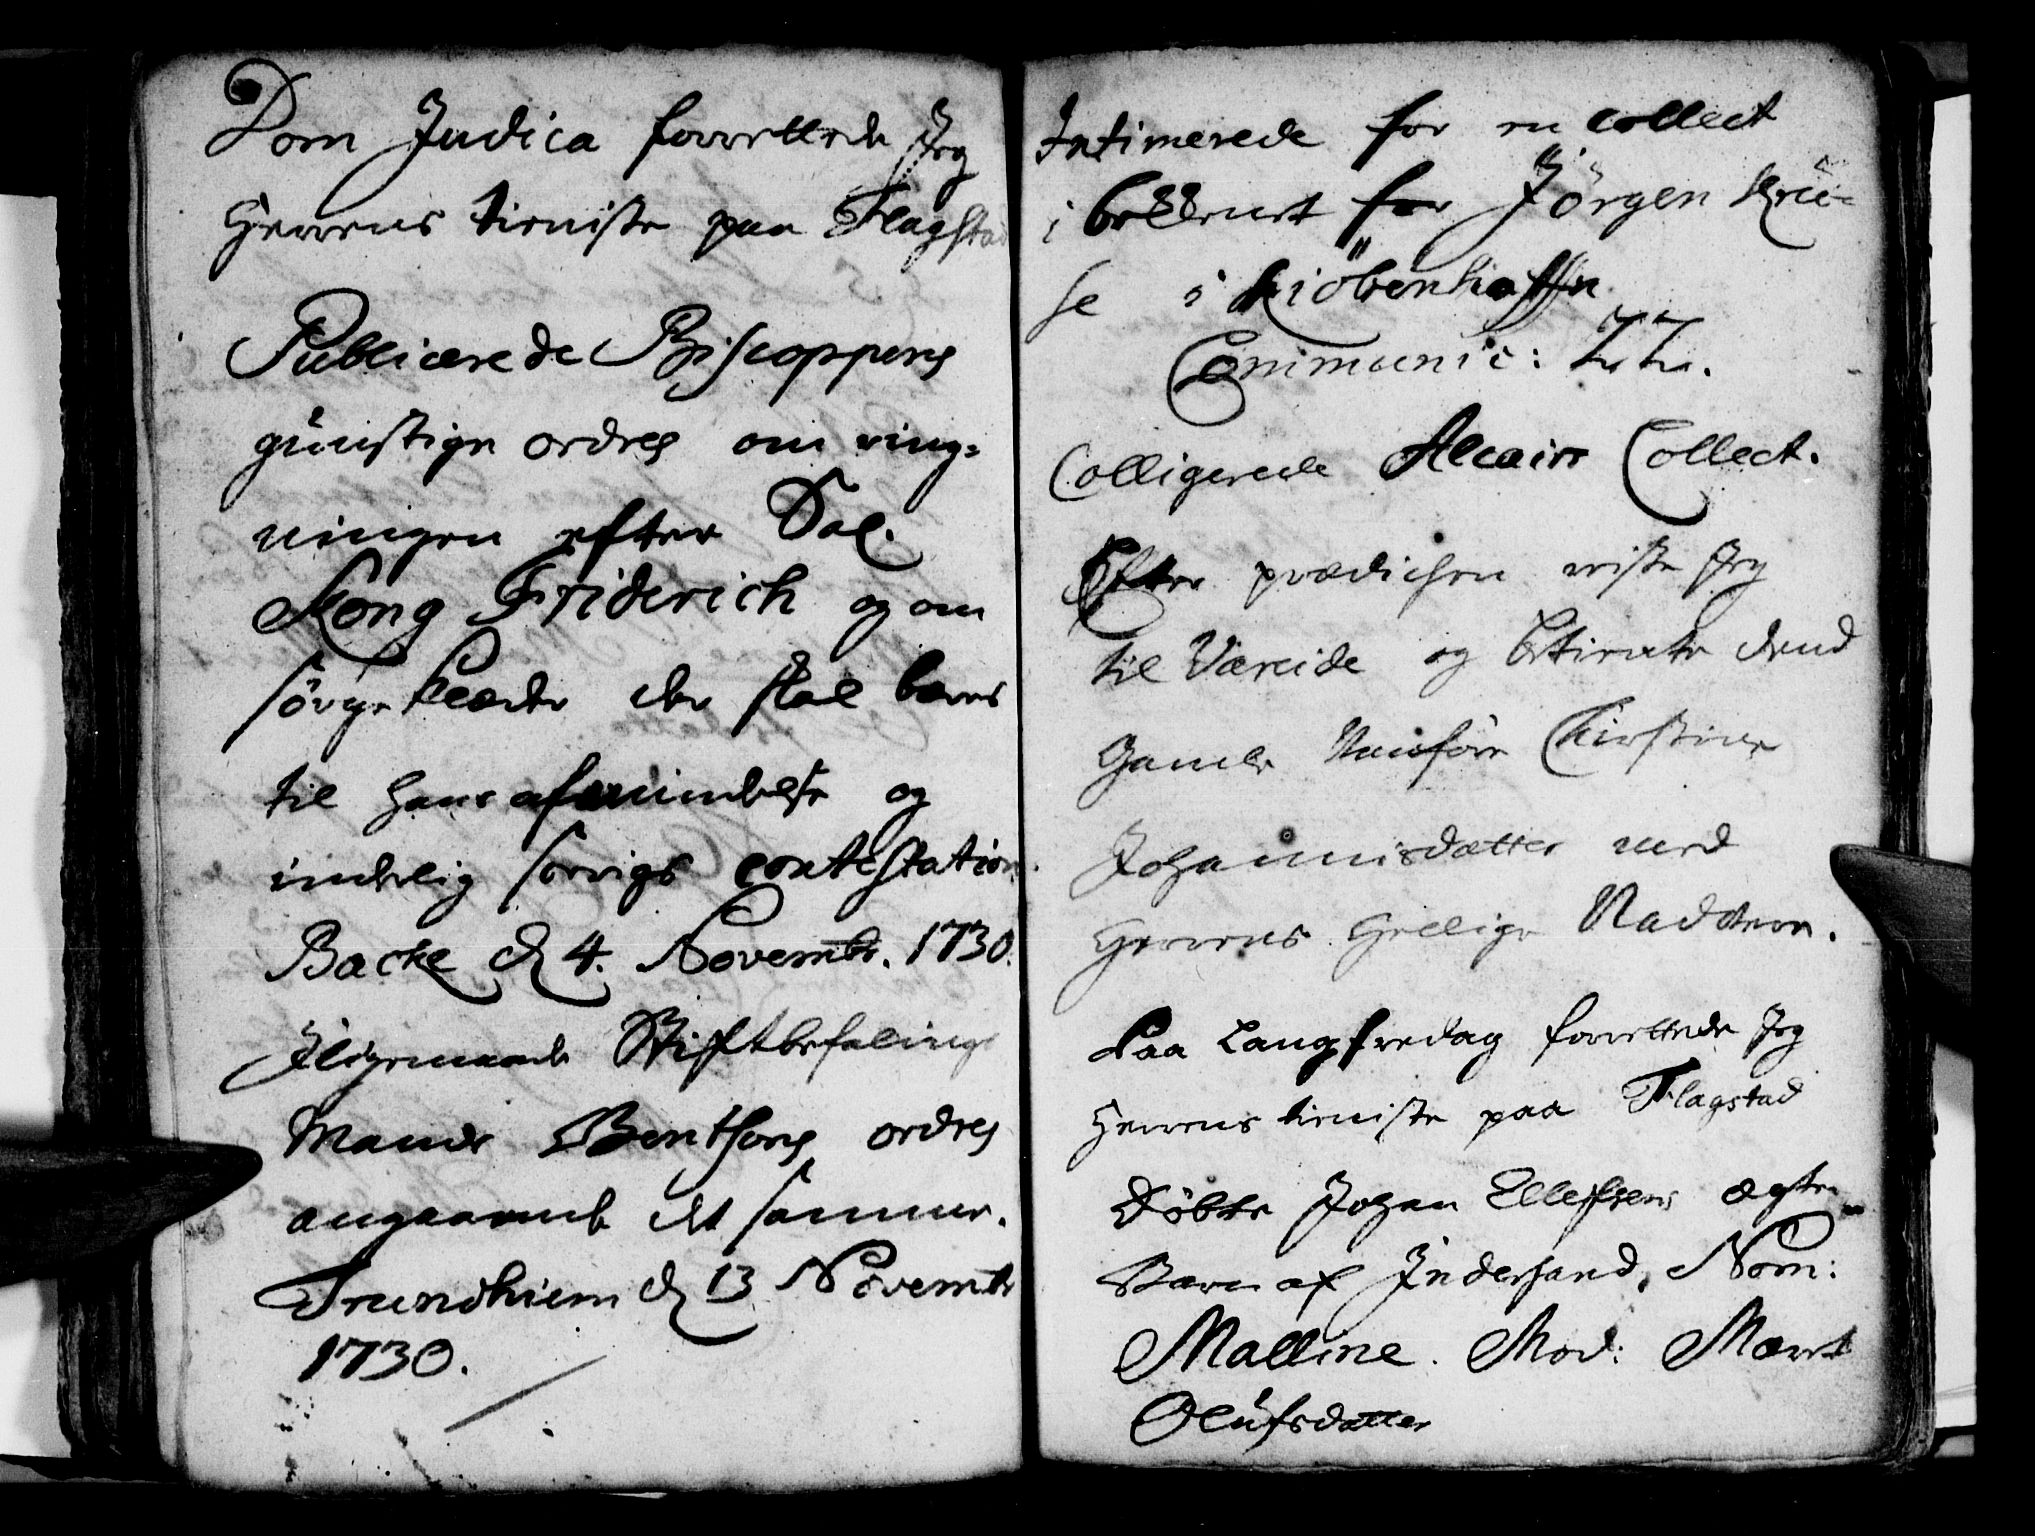 Dom Judica forrettede Jeg
Herrens tieniste paa Flagstad
Publicerede Biscoppens
günstige ordres om ring-
ningen efter Sal.
Kong Friderich og om
sörge klæder der skal bæres
til hans afmindelse og
inderlig sorrigs contestation.
Backe d. 4. Novembr. 1730.
Iligemaade Stiftbefalings
Mands Benthons ordres
angaaende det samme.
Trundhiem d. 13 Novembr
1730.
Intimerede for en collect
i beKKenet for Jörgen Krü-
se i Kiöbenhaffn
Communic: 77.
Colligerede Collect.
Efter prædichen reiste Jeg
til Væreide og betiente dend
gamle Kirstine
Johannisdatter med
Herrens Hellige Nadvere.
Paa Langfredag forrettede Jeg
Herrens tieniste paa Flagstad
Döbte Johan Ellefsens ægte
Barn af Indersand, Nom:
Malline. Mod: Maret
Olüfsdatter